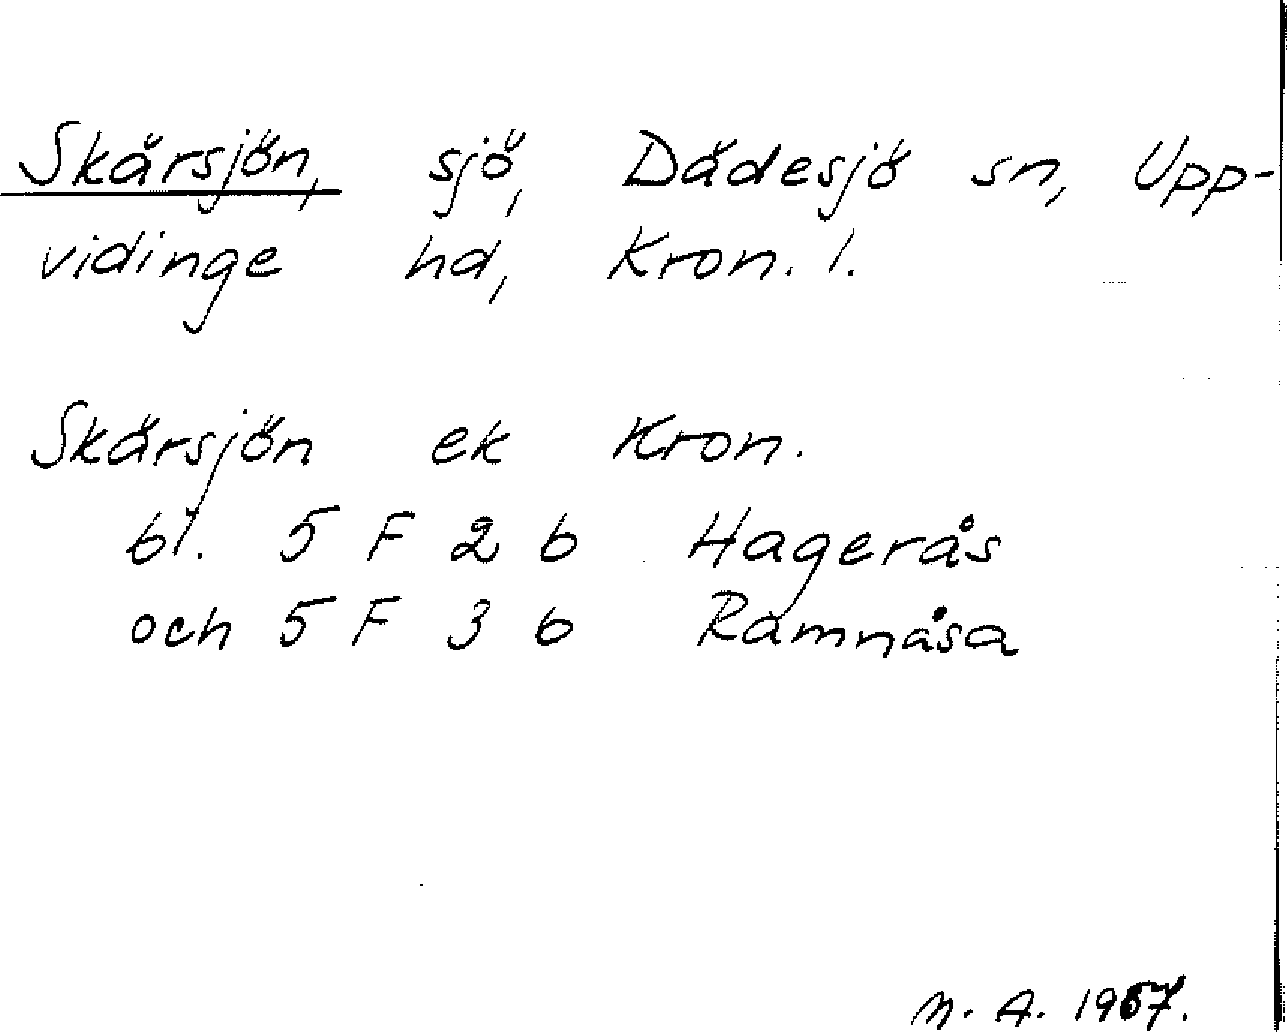 Skärsjön, sjö, Dädesjö sn, Upp-
vidinge hd, Kron. l.
Skärsjön ek Kron.
bl. 5 F 2 b Hagerås
och 5 F 3 b Ramnåsa
N. A. 1967.